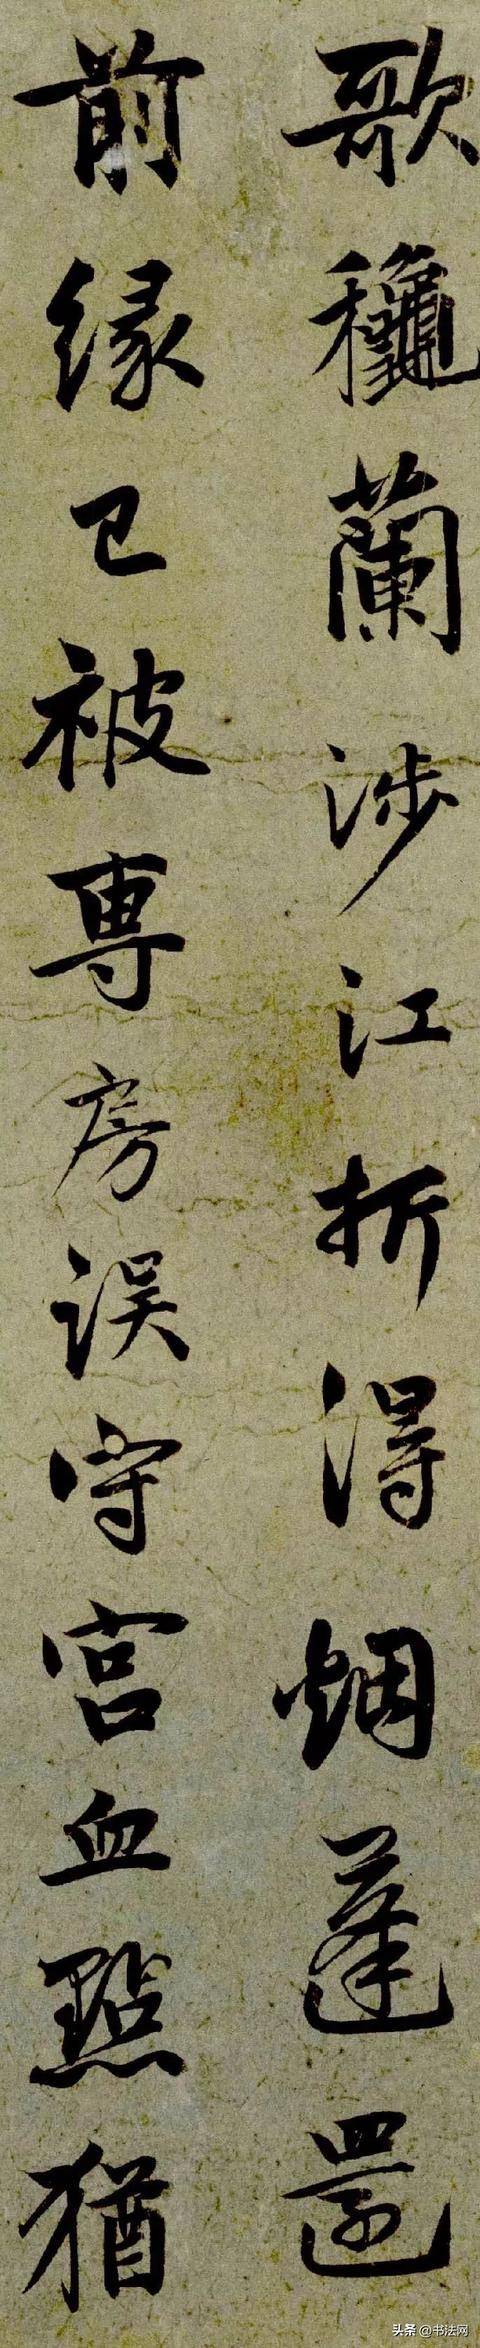 歌龝蘭涉江折得烟蓬還
前緣已被專房误守宫血點猶
头条 @书法网